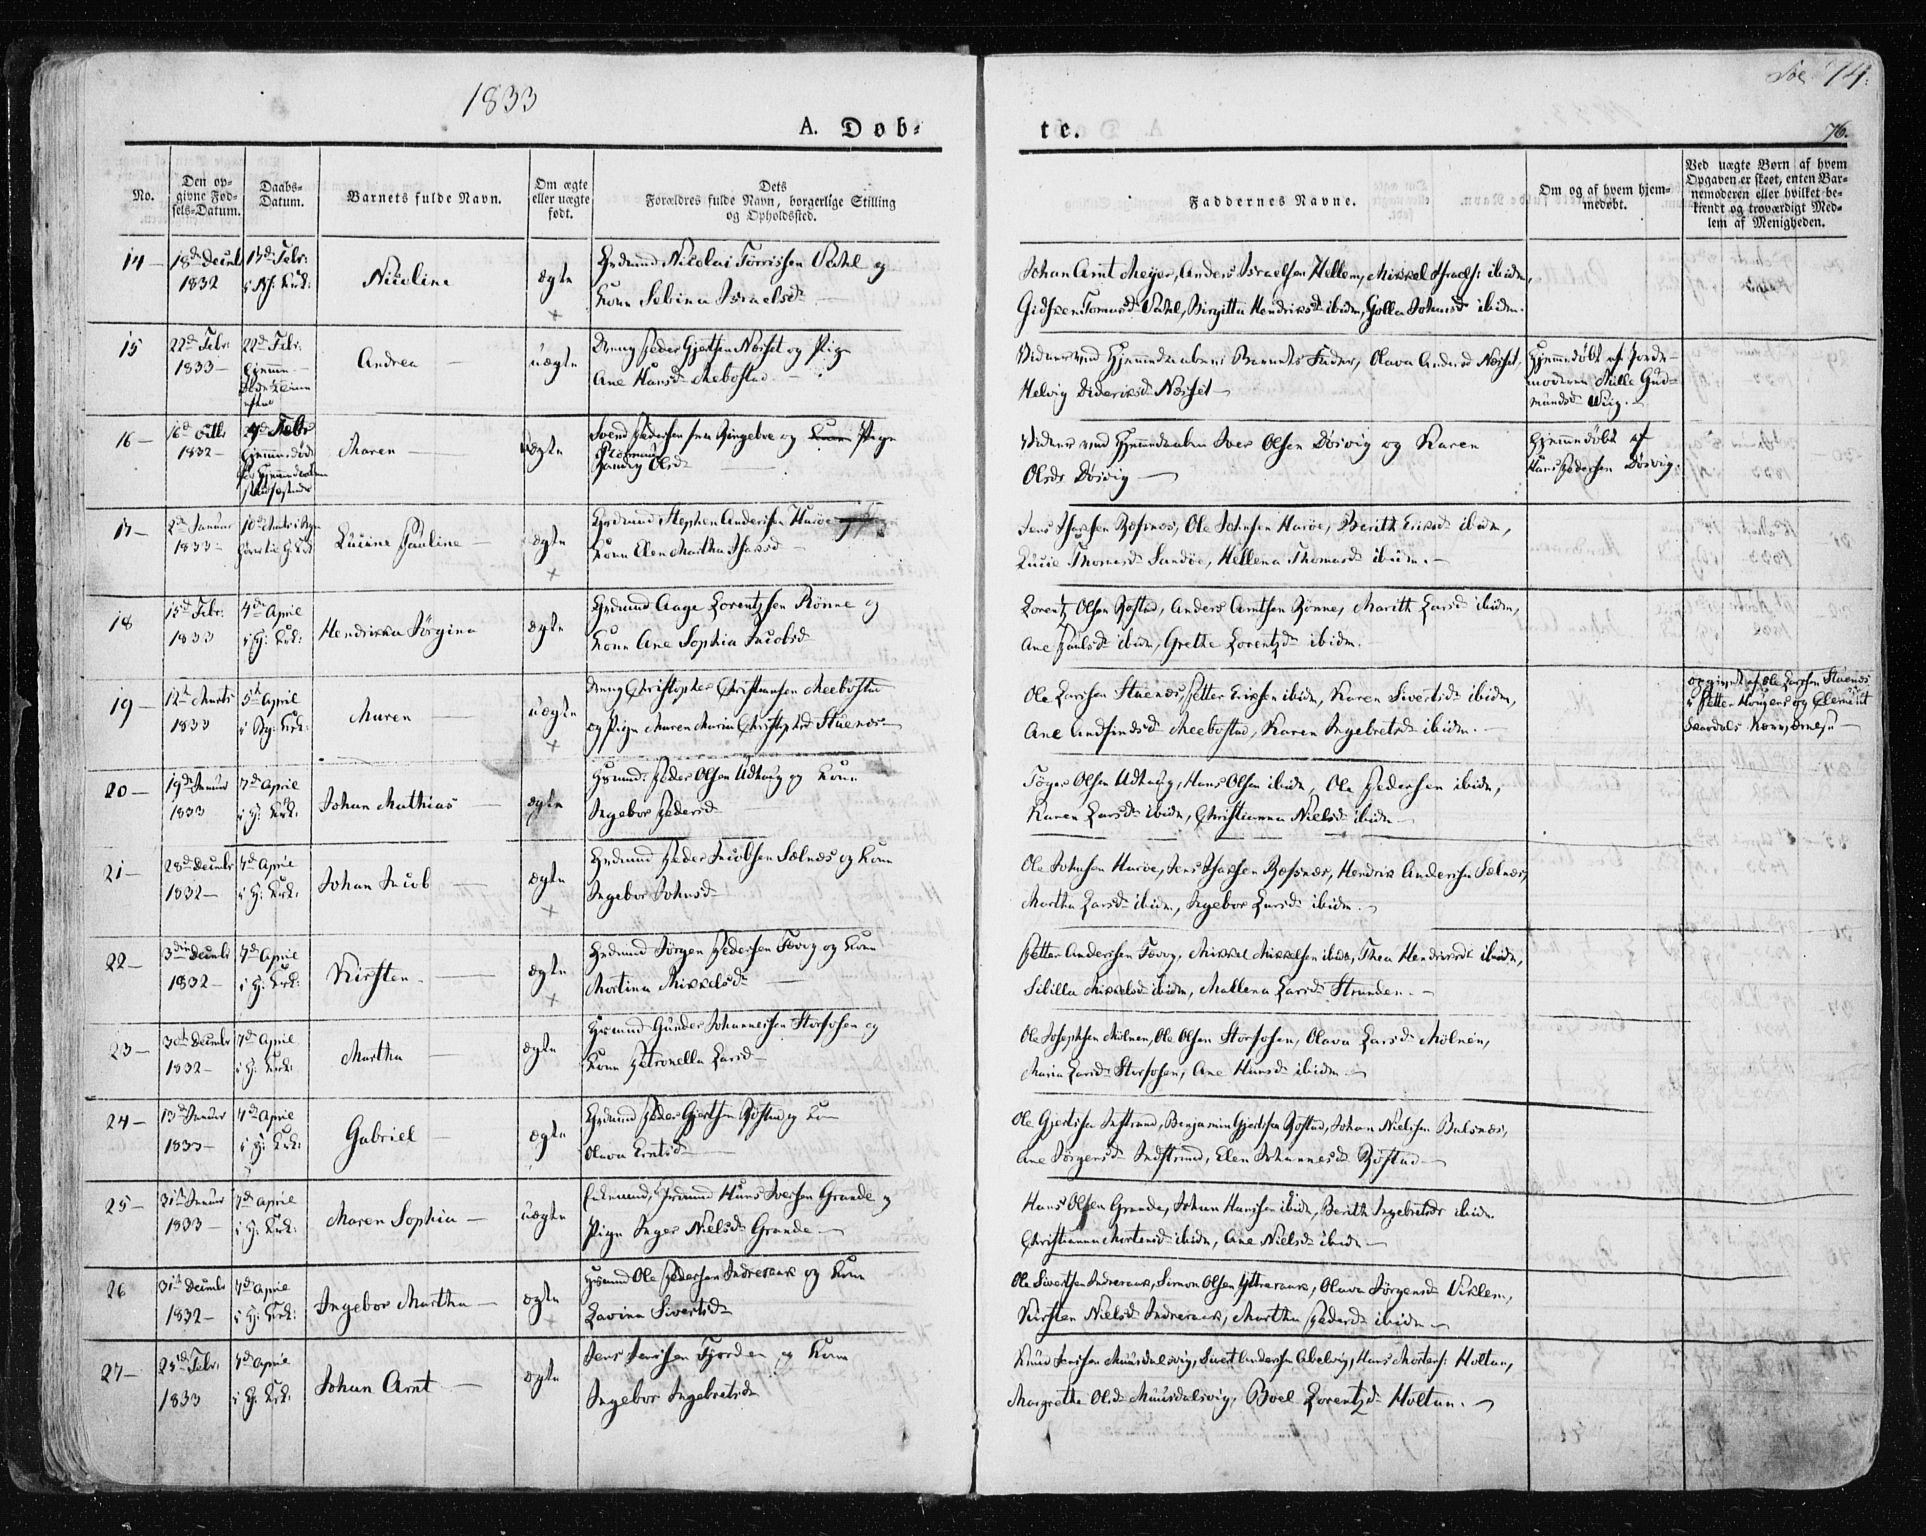 1833
Fol. 74.
A. Døb-
te.
76.
No.
Den op-
givne Fød-
sels-Datum.
Daabs-
Datum.
Barnets fulde Navn.
Om ægte
eller uægte
født.
Dets
Forældres fulde Navn, borgerlige Stilling
og Opholdssted.
Faddernes Navne.
Om og af hvem hjem-
medøbt.
Ved uægte Børn af hvem
Opgaven er skeet, enten Bar-
nemoderen eller hvilket be-
kiendt og troværdigt Med-
lem af Menigheden.
14 –
18de Decmb
1832
Nicoline
ægte
Huusmand Nicolai Tørrissen Vahl og
Kone Sebina Israelsd.
Johan Arnt Meyer, Anders Israelsen Hellem, Mikkel Israels: ibidm,
Tomasd Vahl, Birgitta Hendriksd ibidm, Golla Johansd ibidm.
15
22de Febr:
1833 –
22de Febr.
Andrea
uægte
Dreng Peder Gjertsen Næsset og Pige
Ane Hansd Meebostad
Vidner ved Hjemmedaaben Barnets Fader, Olava Andersd Næsset,
Helvig Dideriksd Næsset –
Hjemmedøbt af Jorde-
moderen Mille Gud-
mundsd Wiig.
16 –
1832 –
Maren
uægte
Svend Pedersen fra Ringeboe og Pige
Olsd
Vidner ved Hjemmedaaben Iver Olsen Døsvig og Karen
Olsdr Døsvig –
Hjemmedøbt af
Hans Pedersen Døsvig.
17 –
2de Januar
1833 –
Lucine Pauline –
ægte
Huusmand Stephen Anderssen Harøe
Kone Elen Martha Isaksd
Jens Isaksen Røssnæs, Ole Johnsen Harøe, Berith Eriksd ibidm,
Lucie Thomasd Sandøe, Hellena Thomasd ibidm.
18
15de Febr:
1833
4de April
i Hj: Kirk:
Hendrikka Jørgina
ægte
Huusmand Aage Lorentzsen Rønne og
Kone Ane Sophia Jacobsd
Lorentz Olsen Rostad, Anders Arntsen Rønne, Marith Larsd ibidm,
Ane Paulsd ibidm, Grethe Lorentzd ibidm.
19 –
12te Marts
1833
5te April
Maren –
uægte
Dreng Christopher Christiansen Meebostad
og Pige Maren Maria Christophd Stuenæs
Ole Larssen Stuenæs, Petter Erikssen ibidm, Karen Sivertsd ibidm,
Ane Andfindsd Meebostad, Karen Ingebretsd ibidm.
Opgivet af Ole Larssen Stuenæs
20 –
19de Januar
1833
7de April
i Hj: Kirk.
Johan Mathias –
ægte
Huusmd: Peder Olsen Udhaug og Kone
Ingebor Pedersd
Tøger Olsen Udhaug, Hans Olsen ibidm, Ole Pedersen ibidm,
Karen Larsd ibidm, Christianna Nielsd ibidm –
21 –
28de Decmbr
1832 –
7de April
i Hj: Kirk:
Johan Jacob –
ægte
Huusmand Peder Jacobsen Selnæs og Kone
Ingebor Johnsd
Ole Johnsen Harøe, Jens Isaksen Røssnæs, Hendrik Anderssen Selnæs,
Martha Larsd ibidm, Ingebor Larsd ibidm.
22 –
3die Decmbr
1832 –
7de April
i Hj: Kirk:
Kirsten –
ægte
Huusmand Jørgen Pedersen Tevig og Kone
Mortina Mikkelsd
Petter Anderssen Tevig, Mikkel Mikkelsen ibidm, Thea Hendriksd ibidm,
Sibilla Mikkelsd ibidm, Mallena Larsd Stranden. –
23 –
30te Decmbr
1832 –
7de April
i Hj: Kirk:
Martha –
ægte
Huusmand Gunder Johannessen Storfosen og
Kone Petronella Larsd
Ole Josephsen Mølnen, Ole Olsen Storfosen, Olava Larsd Mølnen,
Maria Larsd Storfosen, Ane Hansd ibidm
24 –
13de Januar
1833 –
7de April
i Hj: Kirk:
Gabriel –
ægte
Huusmand Peder Gjertsen Rostad og Kone
Olava Erntsd
Ole Gjertsen Indstrand, Benjamin Gjertsen Rostad, Johan Nielssen Balsnæs,
Ane Jørgensd Indstrand, Elen Johannesd Rostad –
25 –
31te Januar
1833 –
7de April
i Hj: Kirk:
Maren Sophia –
uægte
Enkemand, Huusmand Hans Iverssen Grande og
Pige Inger Nielsd Grande
Hans Olsen Grande, Johan Hanssen ibidm, Berith Ingebretsdr ibidm
Christianna Mortensd ibidm, Ane Nielsd ibidm –
26
31te Decmbr
1832 –
7de April
i Hj: Kirk:
Ingebor Martha –
ægte
Huusmand Ole Pedersen Indreraak og Kone
Lavina Sivertsd
Ole Sivertsen Indreraak, Simon Olsen Yttreraak, Olava Jørgensd Viklem,
Kirsten Nielsd Indreraak, Martha Pedersd ibidm –
27 –
25de Febr.
1833
7de April
i Hj. Kirk:
Johan Arnt –
ægte
Jens Jenssen Fjorden og Kone
Ingebor Ingebretsd
Knud Jenssen Muusdalsvig, Sivert Anderssen Abelvig, Hans Mortens: Holtan,
Margrethe Olsd Muusdalsvig, Boel Lorentzd Holtan.